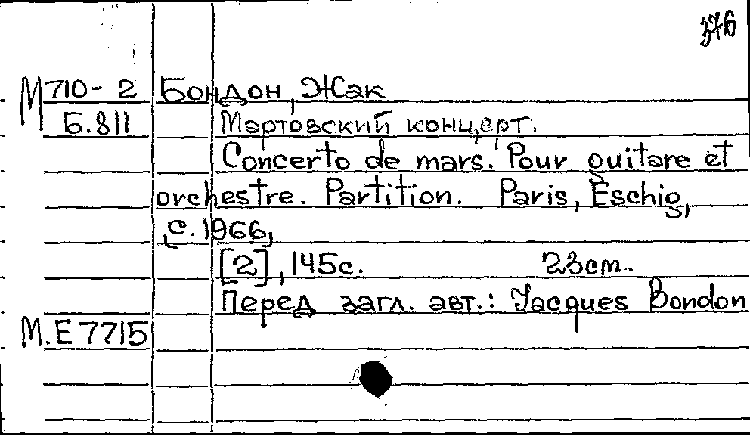 376
М 710-2 Бондон, Жак
Б.811 Мартовский концерт.
Concerto de mars. Pour guitare et
orchestre. Partition. Paris, Eschig,
c.1966,
[2], 145с. 23cm.
Перед загл. авт.: Jacques Bondon
M.E 7715